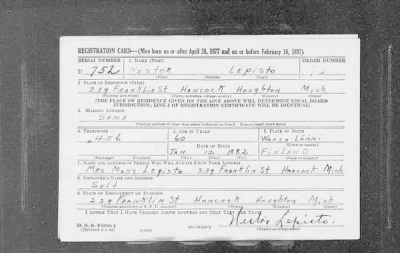 REGISTRATION CARD—(Men born on or after April 28, 1877 and on or before February 16, 1897)
SERIAL NUMBER 1. NAME (Print) ORDER NUMBER
U 752 NESTOR LEPISTO
2. PLACE OF RESIDENCE (Print)
239 FRANKLIN ST HANCOCK HOUGHTON MICH
(THE PLACE OF RESIDENCE GIVEN ON THE LINE ABOVE WILL DETERMINE LOCAL BOARD
JURISDICTION; LINE 2 OF REGISTRATION CERTIFICATE WILL BE IDENTICAL)
3. MAILING ADDRESS
SAME
4. TELEPHONE 5. AGE IN YEARS 6. PLACE OF BIRTH
456 60
DATE OF BIRTH
JAN 12 1882 FINLAND
7. NAME AND ADDRESS OF PERSON WHO WILL ALWAYS KNOW YOUR ADDRESS
MRS MARY LEPISTO 239 FRANKLIN ST HANCOCK MICH
8. EMPLOYER'S NAME AND ADDRESS
SELF
9. PLACE OF EMPLOYMENT OR BUSINESS
239 FRANKLIN ST HANCOCK HOUGHTON MICH
I AFFIRM THAT I HAVE VERIFIED ABOVE ANSWERS AND THAT THEY ARE TRUE.
D. S. S. Form 1
Nestor Lepisto